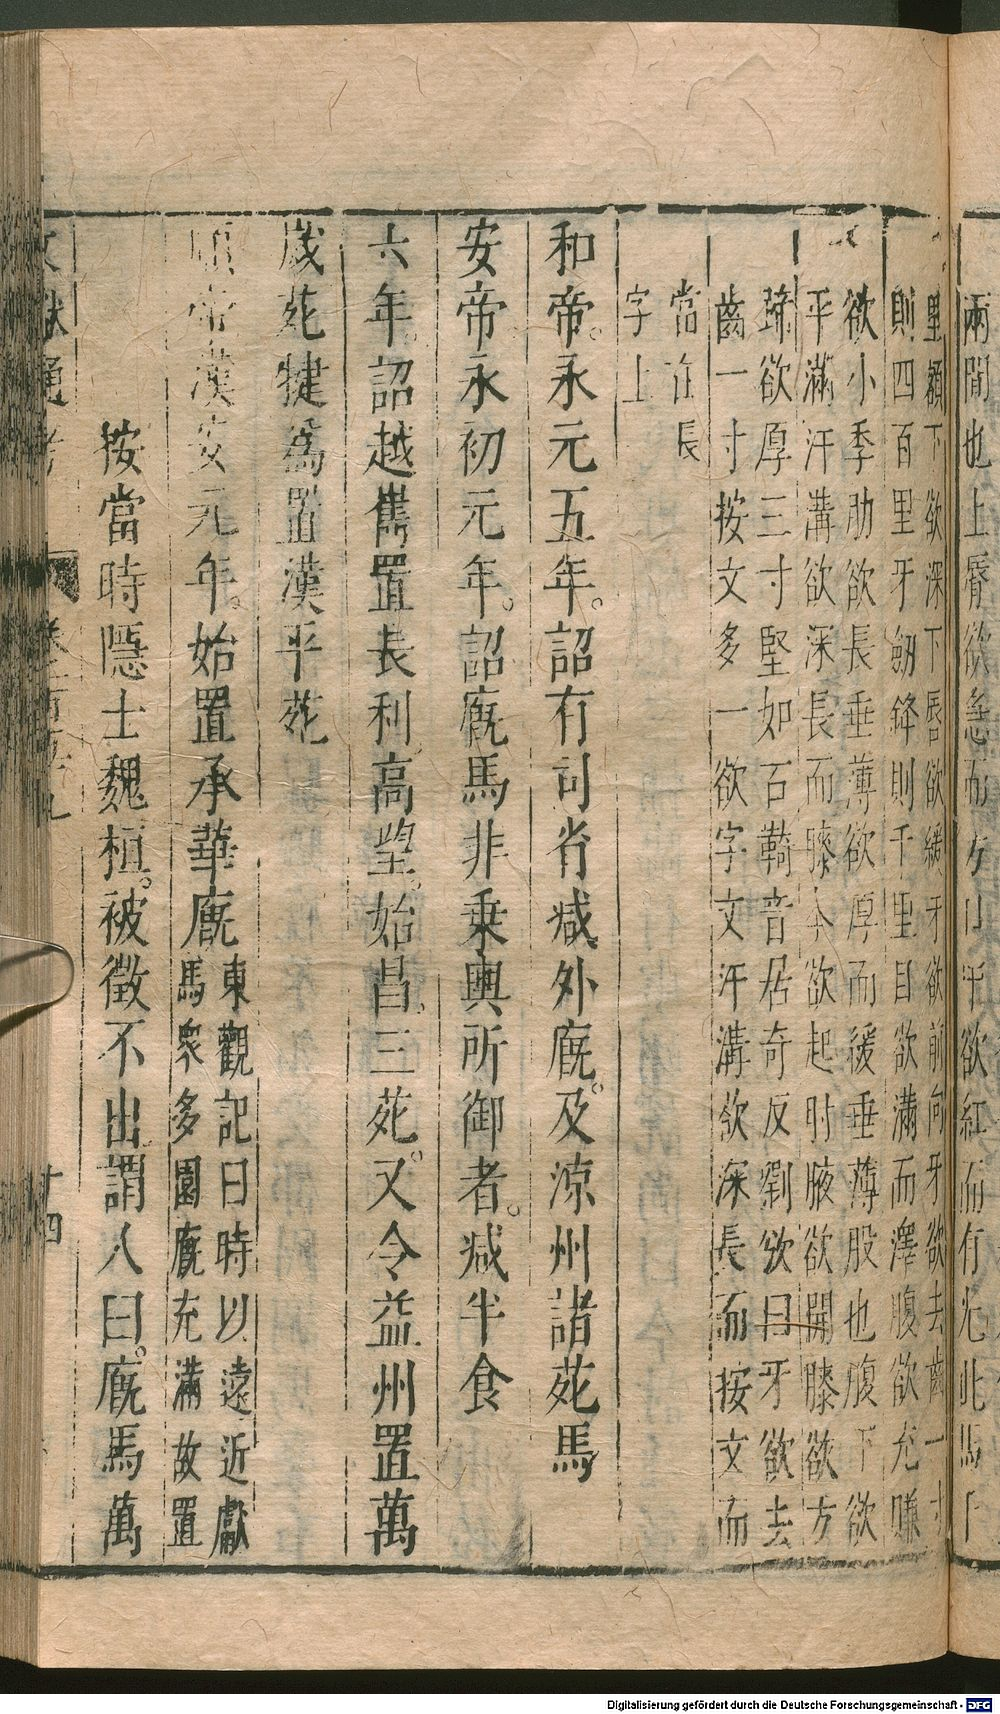 兩間也上脣欲急而方口中欲紅而有光此馬千
里頷下欲深下脣欲緩牙欲前向牙欲去齒一寸
則四百里牙劒鋒則千里目欲滿而澤腹欲充𦝫
欲小季肋欲長垂薄欲厚而緩垂薄股也腹下欲
平滿汗溝欲深長而膝本欲起肘腋欲開膝欲方
蹄欲厚三寸堅如石䩭音居奇反劉攽曰牙欲去
齒一寸按文多一欲字文汗溝欲深長而按文而
當在長
字上
和帝永元五年詔有司省减外廐及涼州諸苑馬
安帝永初元年詔廐馬非乗輿所御者减半食
六年詔越巂置長利高望始昌三苑又令益州置萬
歲苑犍爲置漢平苑
順帝漢安元年始置承華廐東觀記曰時以遠近獻
馬衆多園廐充滿故置
按當時隱士魏桓被徵不出謂人曰廐馬萬
文獻通考
十四
Digitalisierung gefördert durch die Deutsche Forschungsgemeinschaft - DFG